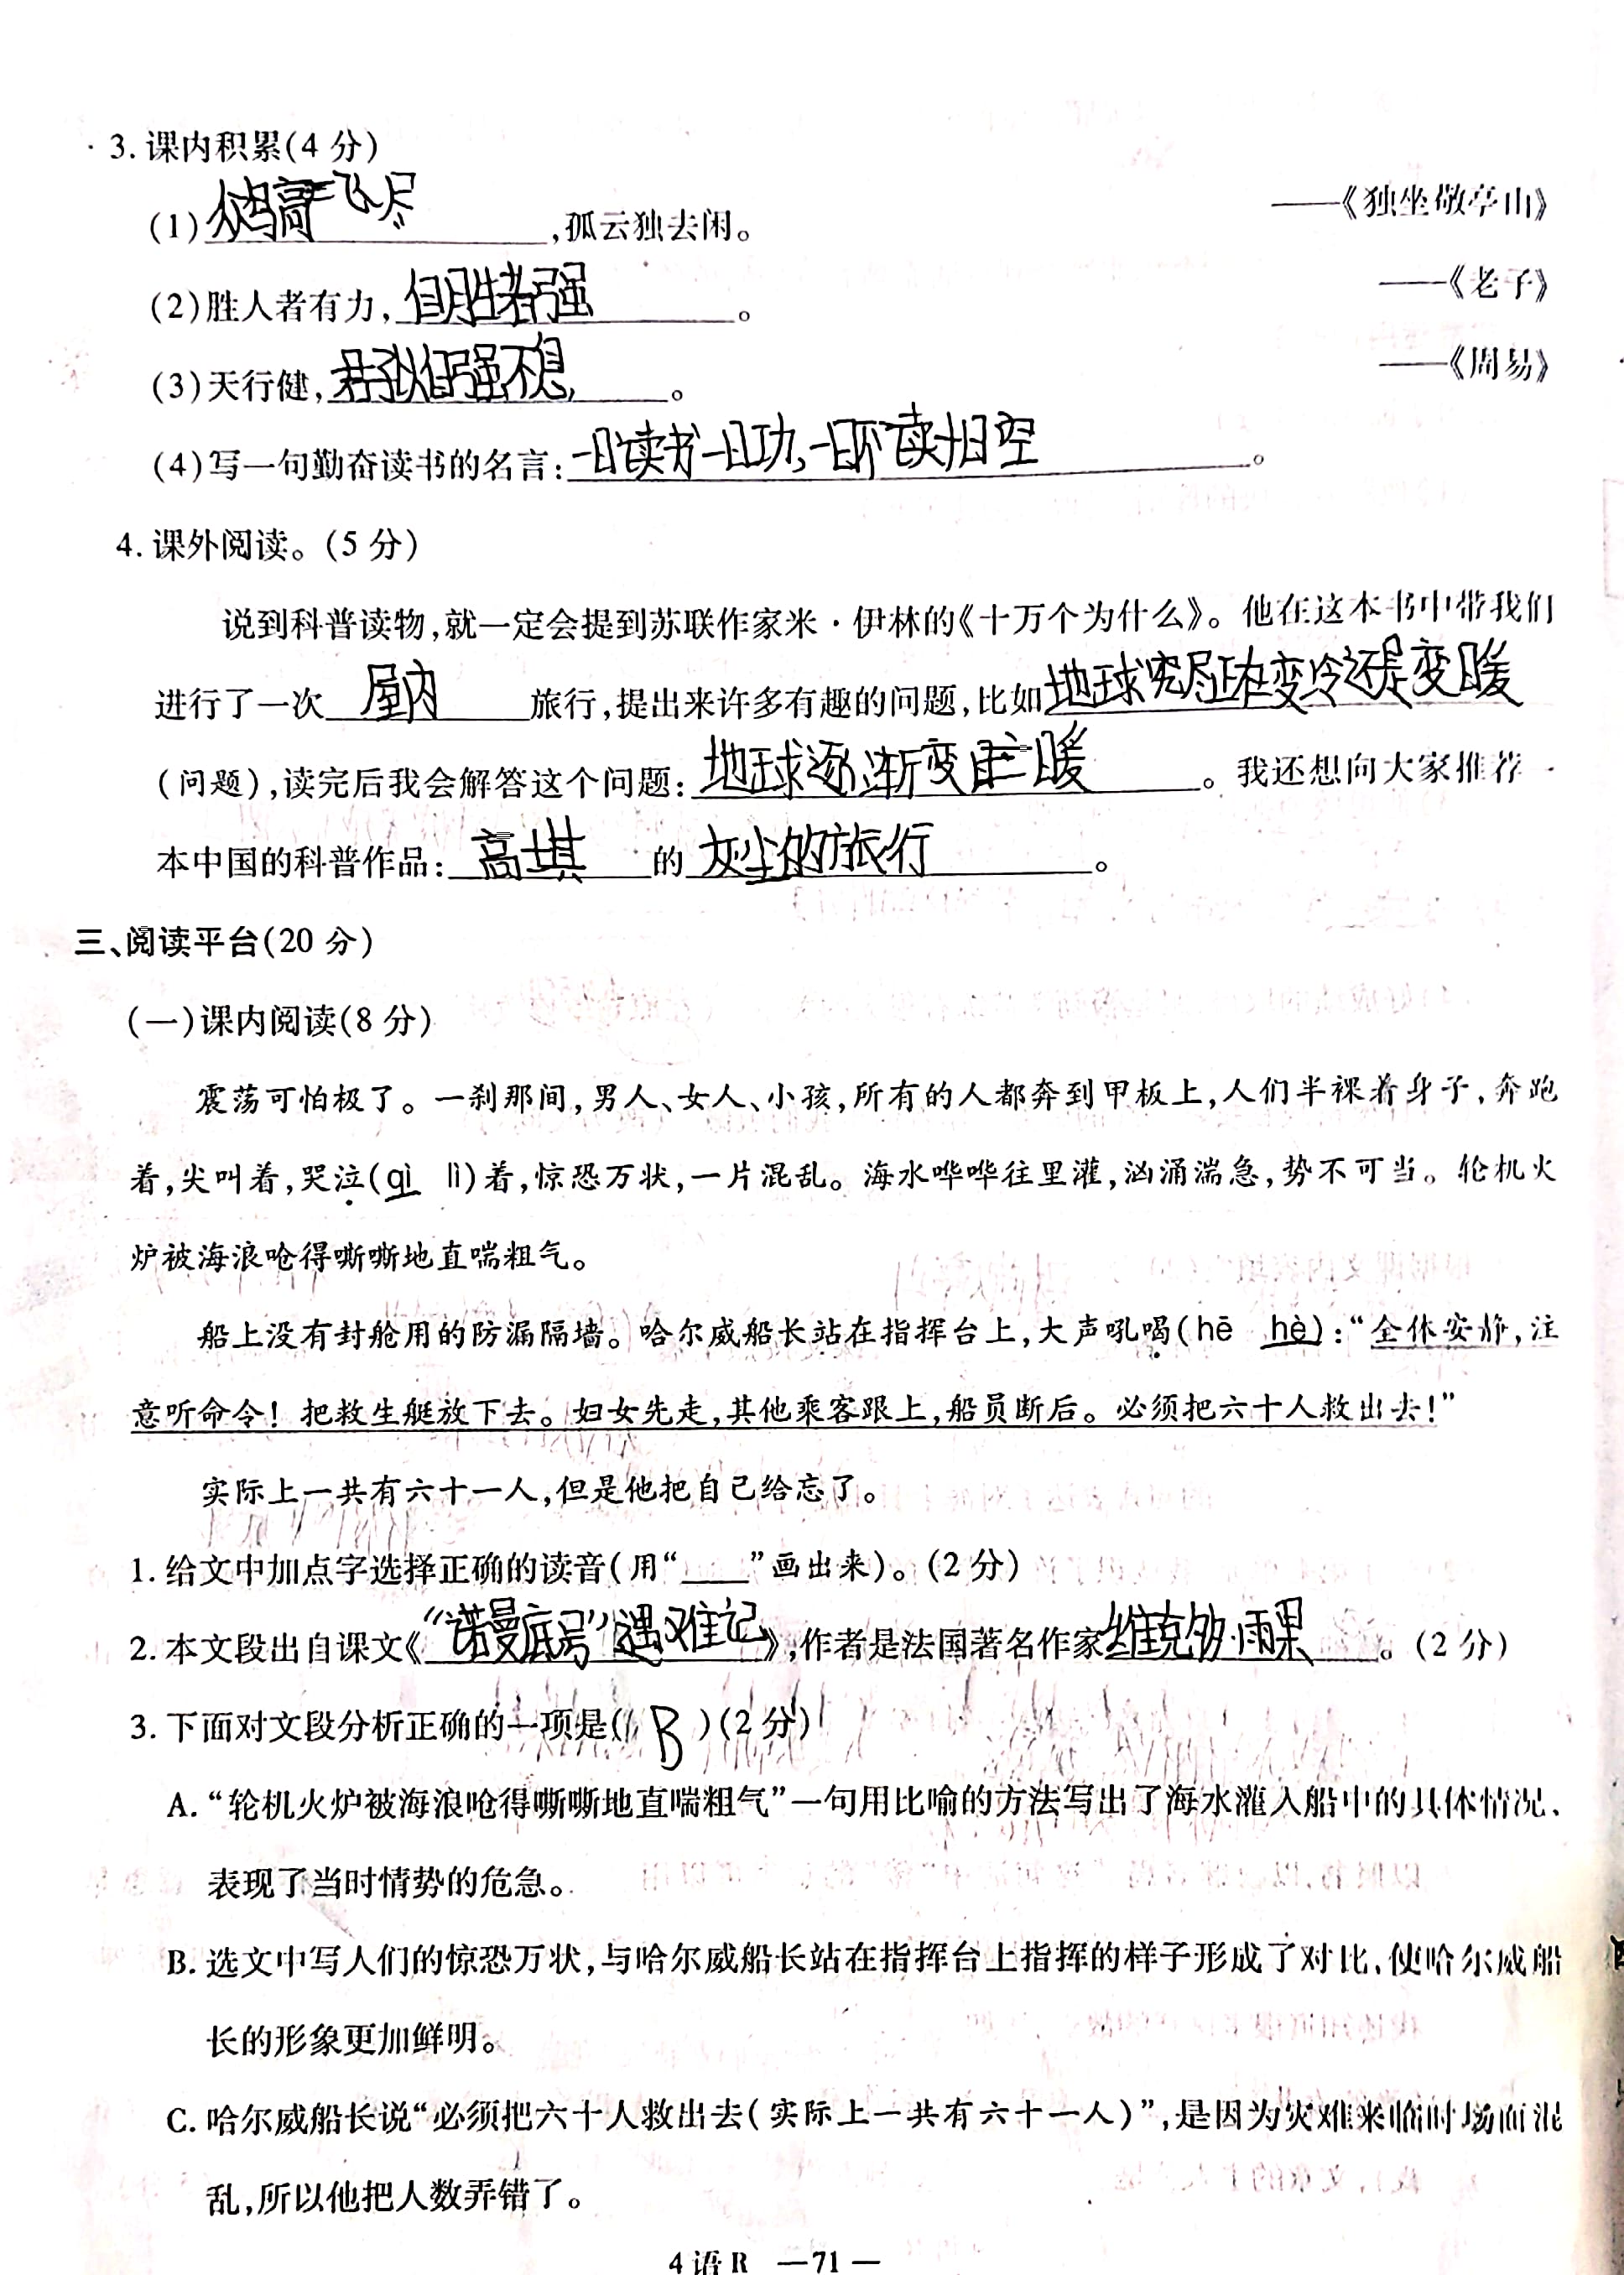 3. 课内积累(4 分)
(1)众鸟高飞尽,孤云独去闲。 ——《独坐敬亭山》
(2)胜人者有力,自胜者强。 ——《老子》
(3)天行健,君子以自强不息。 ——《周易》
(4)写一句勤奋读书的名言:一日读书一日功,一日不读十日空。
4. 课外阅读。(5 分)
说到科普读物,就一定会提到苏联作家米·伊林的《十万个为什么》。他在这本书中带我们
进行了一次屋内旅行,提出来许多有趣的问题,比如地球究尽正在变冷还是变暖
(问题),读完后我会解答这个问题:地球逐渐变暖。我还想向大家推荐一
本中国的科普作品:高士其的灰尘的旅行。
三、阅读平台(20 分)
(一)课内阅读(8 分)
震荡可怕极了。一刹那间,男人、女人、小孩,所有的人都奔到甲板上,人们半裸着身子,奔跑
着,尖叫着,哭泣(qì lì)着,惊恐万状,一片混乱。海水哗哗往里灌,汹涌湍急,势不可当。轮机火
炉被海浪呛得嘶嘶地直喘粗气。
船上没有封舱用的防漏隔墙。哈尔威船长站在指挥台上,大声吼喝(hē hè):“全体安静,注
意听命令!把救生艇放下去。妇女先走,其他乘客跟上,船员断后。必须把六十人救出去!”
实际上一共有六十一人,但是他把自己给忘了。
1. 给文中加点字选择正确的读音(用“___”画出来)。(2 分)
2. 本文段出自课文《“诺曼底号”遇难记》,作者是法国著名作家维克多·雨果。(2 分)
3. 下面对文段分析正确的一项是( B )(2 分)
A. “轮机火炉被海浪呛得嘶嘶地直喘粗气”一句用比喻的方法写出了海水灌入船中的具体情况,
表现了当时情势的危急。
B. 选文中写人们的惊恐万状,与哈尔威船长站在指挥台上指挥的样子形成了对比,使哈尔威船
长的形象更加鲜明。
C. 哈尔威船长说“必须把六十人救出去(实际上一共有六十一人)”,是因为灾难来临时场面混
乱,所以他把人数弄错了。
4 语 R —71—